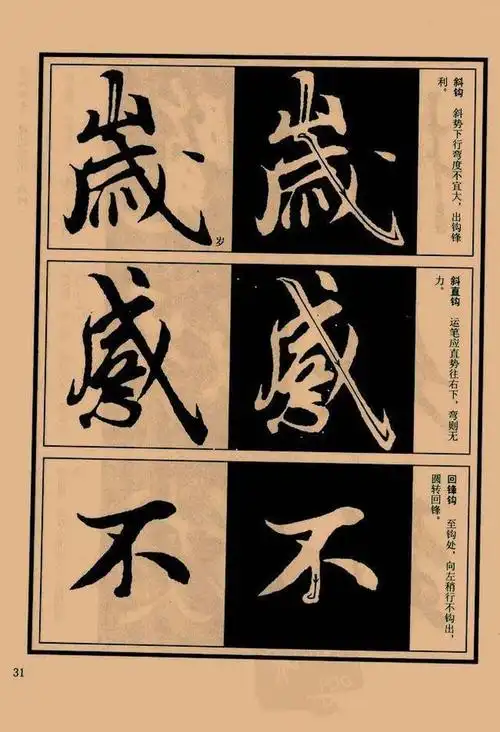 斜钩 斜势下行弯度不宜大，出钩锋
利。
歲
歲
岁
斜直钩 运笔应直势往右下，弯则无
力。
感
感
回锋钩 至钩处，向左稍行不钩出，
圆转回锋。
不
不
31